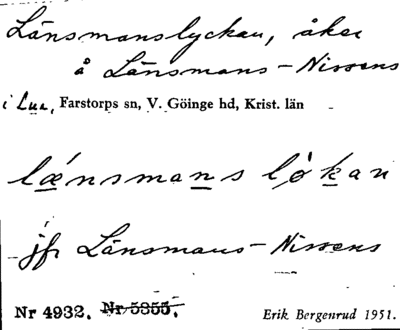 Länsmanslyckan, åker
å Länsmans-Nissens
i Lur, Farstorps sn, V. Göinge hd, Krist. län
lænsmans lökan
jfr Länsmans-Nissens
Nr 4932. Nr 5355.
Erik Bergenrud 1951.